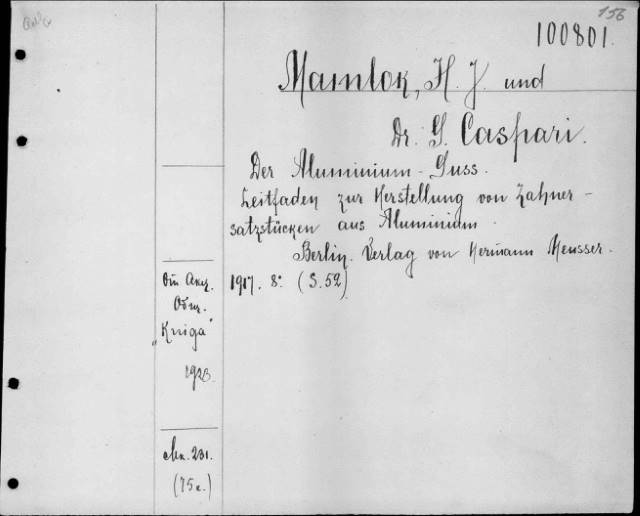 156
100801.
Mamlok, H. J. und
Dr. G. Caspari.
Der Aluminium-Guss.
Leitfaden zur Herstellung von Zahner-
satzstücken aus Aluminium.
Berlin. Verlag von Hermann Meusser.
1917. 8°. (S. 52)
От Акц.
Общ.
„Kniga"
1923.
231.
(75к.)